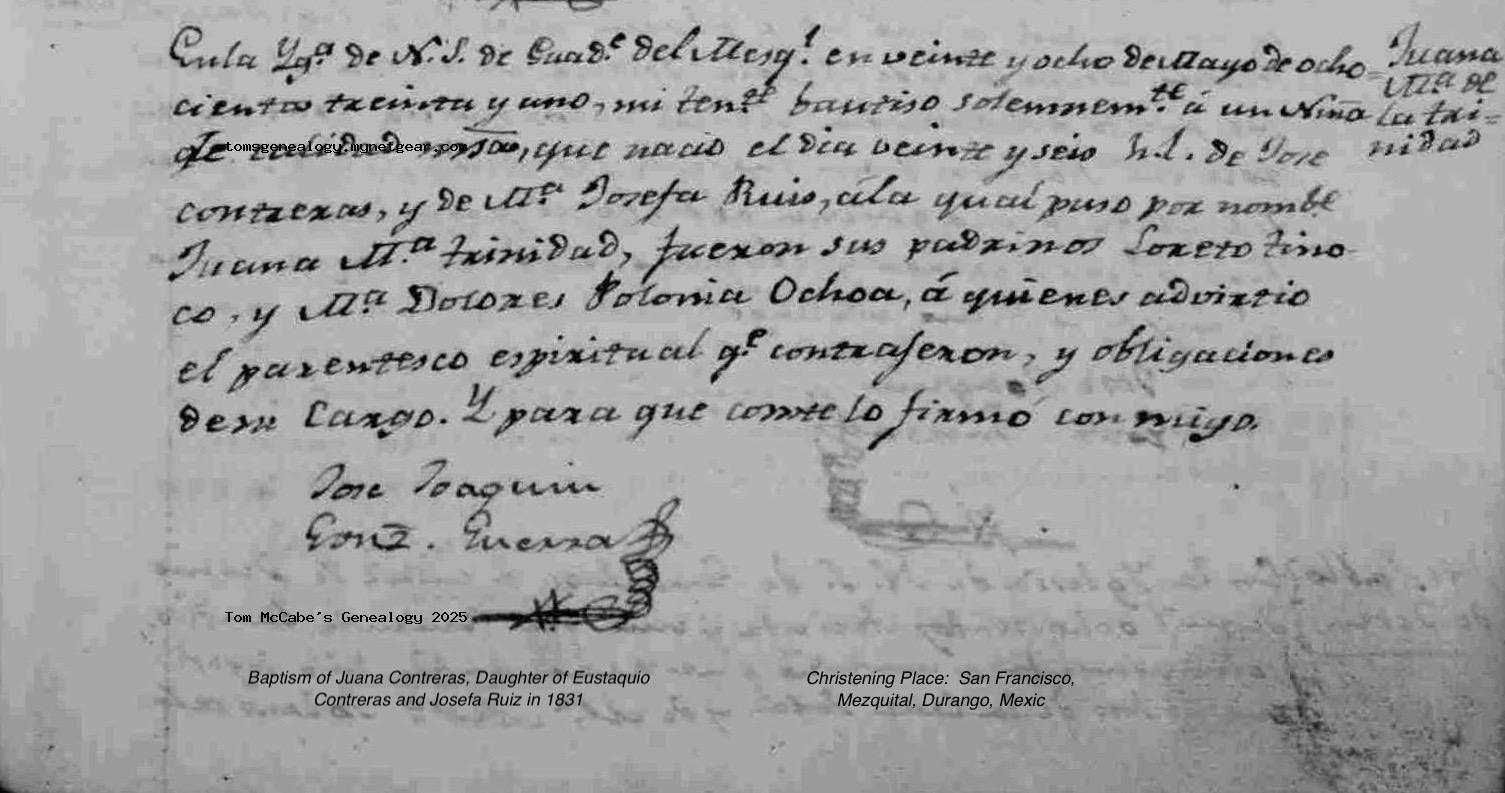 En la Yg.ª de N. S. de Guad.e del Mesq.l en veinte y ocho de Mayo de ocho=
cientos treinta y uno, mi ten.te bautiso solemnem.te á un Niña
de calidad, que nacio el dia veinte y seis h. l. de Jose
contreras, y de M.ª Josefa Ruis, ala qual puso por nombe
Juana M.ª trinidad, fueron sus padrinos Loreto tino
co, y M.ª Dolores Polonia Ochoa, á quienes advirtio
el parentesco espiritual q.e contrajeron, y obligaciones
de su Cargo. Y para que conste lo firmó con migo.
Juana
M.ª de
la tri=
nidad
tomsgenealogy.mynetgear.com
Jose Joaquin
Gonz. Guerra
Tom McCabe's Genealogy 2025
Baptism of Juana Contreras, Daughter of Eustaquio
Contreras and Josefa Ruiz in 1831
Christening Place: San Francisco,
Mezquital, Durango, Mexic